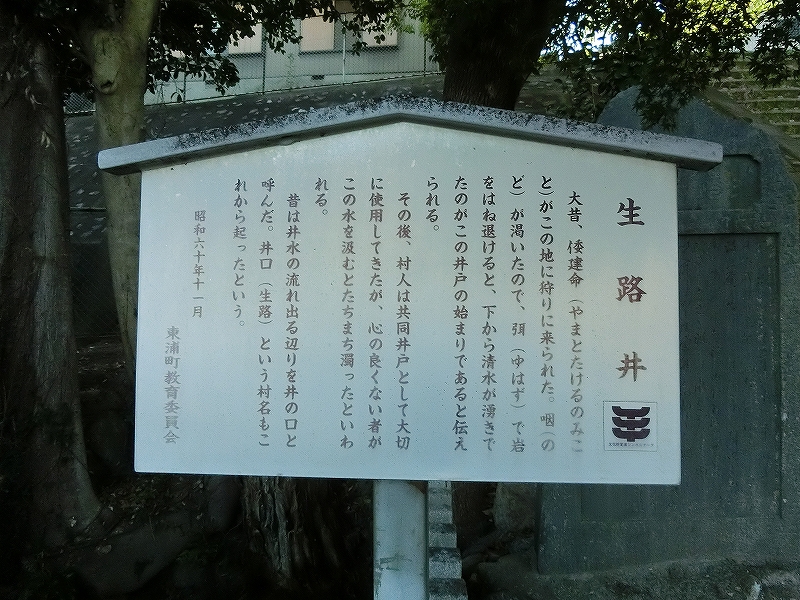 生路井
大昔、倭建命（やまとたけるのみこ
と）がこの地に狩りに来られた。咽（の
ど）が渇いたので、弭（ゆはず）で岩
をはね退けると、下から清水が湧きで
たのがこの井戸の始まりであると伝え
られる。
その後、村人は共同井戸として大切
に使用してきたが、心の良くない者が
この水を汲むとたちまち濁ったといわ
れる。
昔は井水の流れ出る辺りを井の口と
呼んだ。井口（生路）という村名もこ
れから起ったという。
昭和六十年十一月
東浦町教育委員会